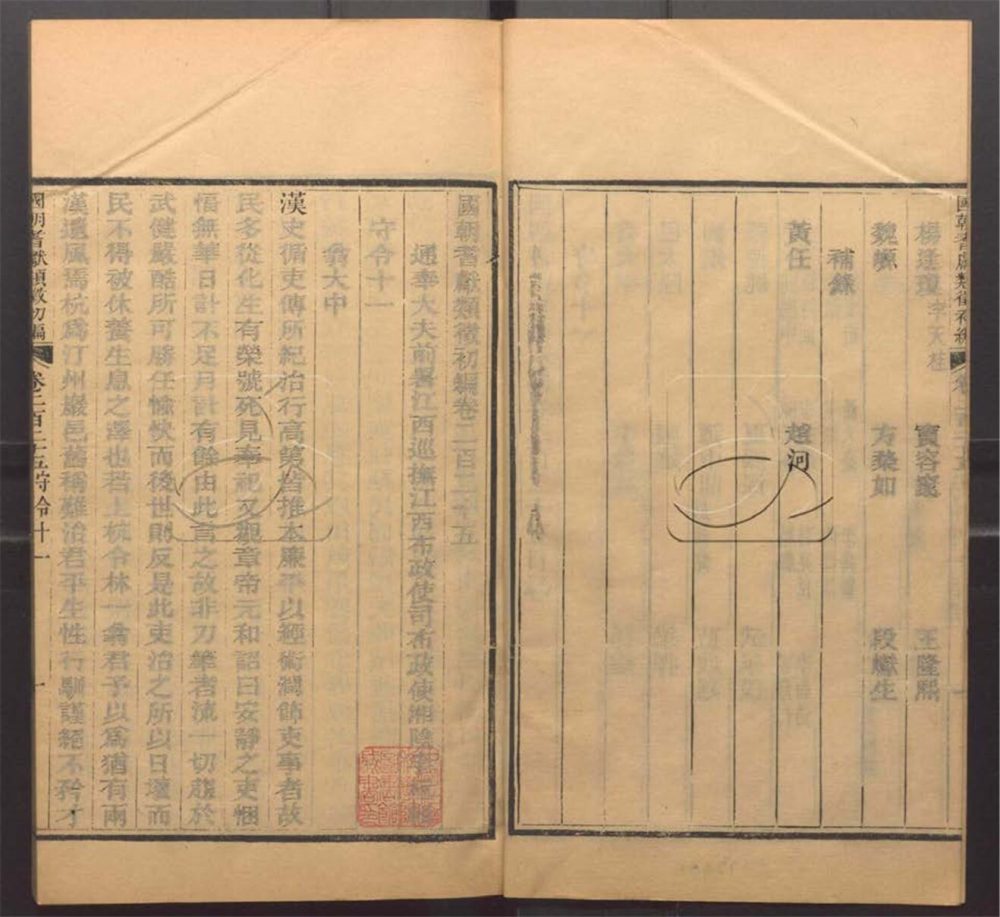 楊逢瓊 李天柱 竇容邃 王隆熙
魏㟲 方棨如 段巘生
補錄
黃任 趙河
國朝耆獻類徵初編卷二百二十五
通奉大夫前署江西巡撫江西布政使司布政使湘陰李桓輯
守令十一
翁大中
漢史循吏傳所紀治行高第皆推本廉平以經術潤飾吏事者故
民多從化生有榮號死見奉祀又觀章帝元和詔曰安靜之吏悃
愊無華日計不足月計有餘由此言之故非刀筆者流一切趨於
武健嚴酷所可勝任愉快而後世則反是此吏治之所以日壞而
民不得被休養生息之澤也若上杭令林一翁君予以為猶有兩
漢遺風焉杭為汀州巖邑舊稱難治君平生性行馴謹絕不矜才
國朝耆獻類徵初編 卷二百二十五 守令十一 一